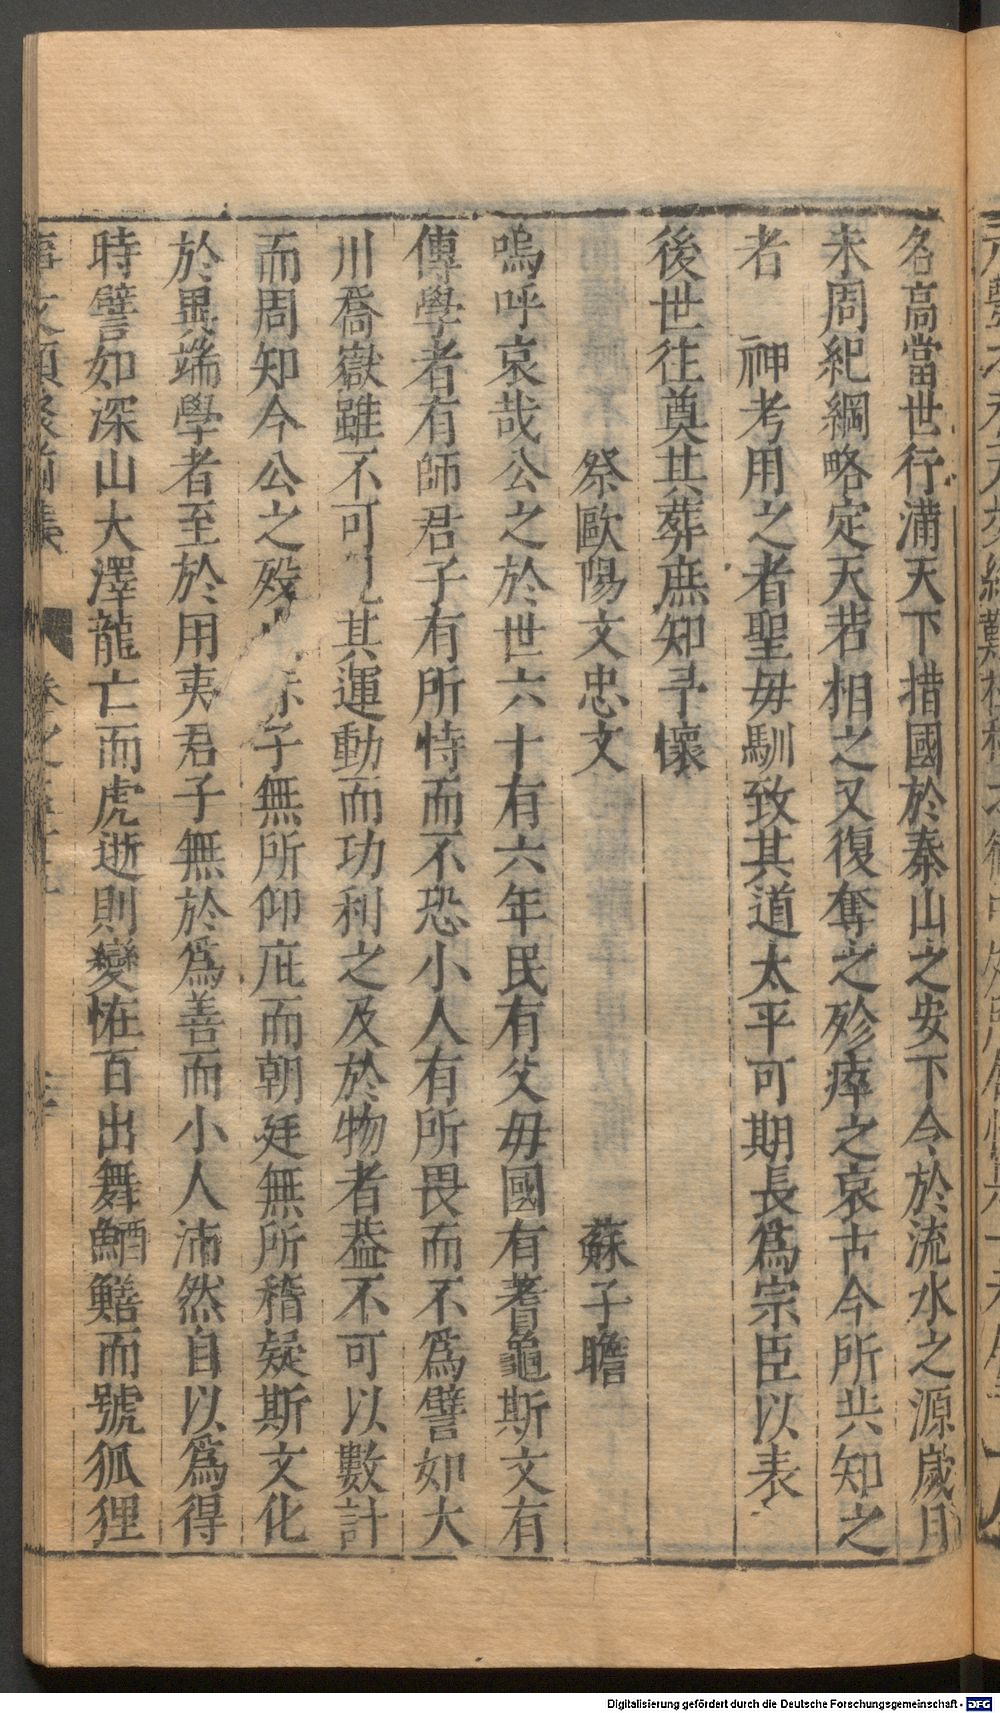 名髙當世行滿天下措國於泰山之安下令於流水之源歲月
未周紀綱略定天若相之又復奪之殄瘁之哀古今所共知之
者　神考用之者聖毋馴致其道太平可期長爲宗臣以表
後世往奠其葬庶知予懷
祭歐陽文忠文　蘇子瞻
嗚呼哀哉公之於世六十有六年民有父毋國有蓍龜斯文有
傳學者有師君子有所恃而不恐小人有所畏而不爲譬如大
川喬嶽雖不可見其運動而功利之及於物者葢不可以數計
而周知今公之殁 子無所仰庇而朝廷無所稽疑斯文化
於異端學者至於用夷君子無於爲善而小人沛然自以爲得
時譬如深山大澤龍亡而虎逝則變恠百出舞鰌鱔而號狐狸
Digitalisierung gefördert durch die Deutsche Forschungsgemeinschaft - DFG